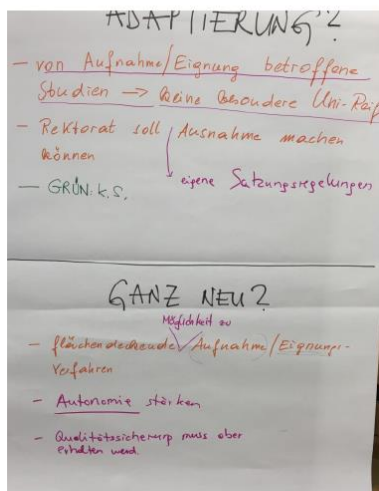 ADAPTIERUNG?
- von Aufnahme/Eignung betroffene
Studien → keine besondere Uni-Reif
- Rektorat soll Ausnahme machen
können
eigene Satzungsregelungen
- GRÜN: k.S.
GANZ NEU?
Möglichkeit zu
- flächendeckende Aufnahme/Eignungs-
verfahren
- Autonomie stärken
- Qualitätssicherung muss aber
erhalten werd.